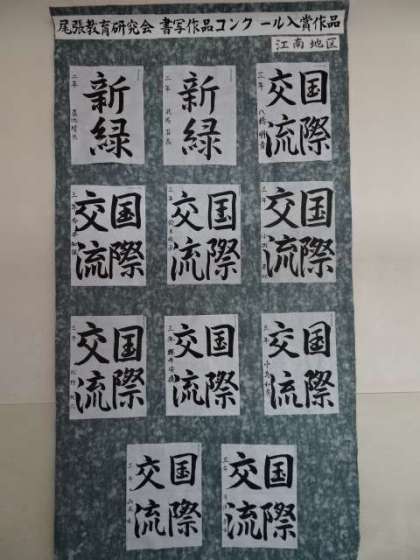 尾張教育研究会 書写作品コンクール入賞作品
江南地区
新緑
二年
新緑
二年
国際
交流
三年
国際
交流
三年
国際
交流
三年
国際
交流
三年
国際
交流
三年
国際
交流
三年
国際
交流
三年
国際
交流
三年
国際
交流
三年